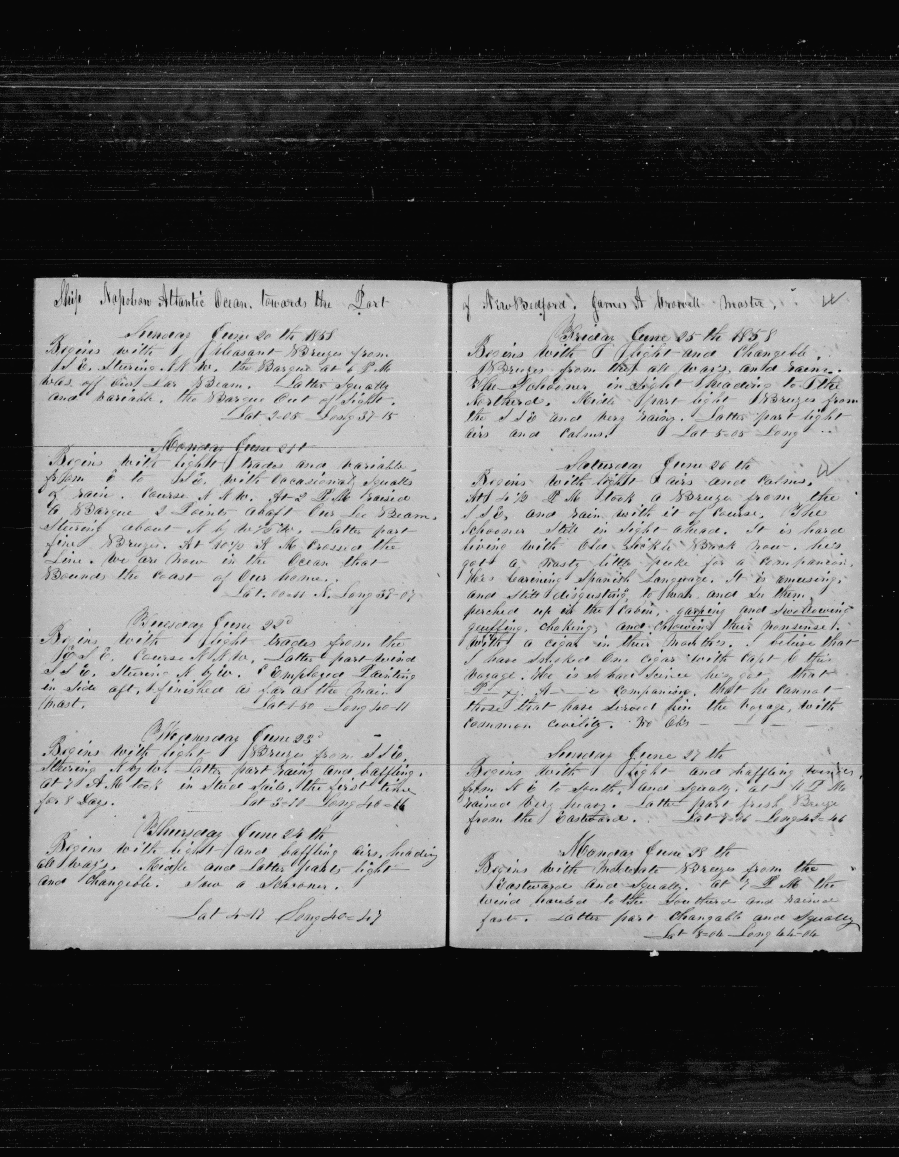 Ship Napoleon Atlantic Ocean towards the Port
Sunday June 20th 1858
Begins with pleasant Breezes from
S S E. Steering N N W. the Barque at 6 P M
was off Our Lar Beam. Latter Squally
and variable. the Barque Out of Sight.
Lat 2-08 Long 37-15
Monday June 21st
Begins with light trades and variable
from E to S S E. with Occasional Squalls
of rain. Course N N W. At 2 P M raised
a Barque 2 Points abaft Our Lee Beam,
Steering about N by W ½ W. Latter part
fine Breezes. At A M Crossed the
Line. We are now in the Ocean that
Bounds the Coast of Our home.
Lat 00-11 N Long 38-07
Tuesday June 22d
Begins with light trades from the
S E. Course N N W. Latter part wind
S S E. Steering N by W. Employed Painting
in Side aft, & finished as far as the main
mast. Lat 1-50 Long 40-11
Wednesday June 23d
Begins with light Breezes from S S E,
Steering N by W. Latter part rainy and baffling.
at 7 A M took in Stud Sails, the first time
for 8 Days. Lat 3-10 Long 40-16
Thursday June 24th
Begins with light and baffling airs, heading
all ways. Middle and Latter parts light
and Changeable. Saw a Schooner.
Lat 4-17 Long 40-47
of New Bedford. James A Crowell Master.
Friday June 25th 1858
Begins with light and Changeble
Breezes from all ways, and rain.
The Schooner in Sight heading to the
Northerd. Midle part light Breezes from
the S S E and very rainy. Latter part light
airs and Calms. Lat 5-05 Long
Saturday June 26th
Begins with light airs and Calms.
At 4½ P M took a Breeze from the
S S E, and rain with it of Course. The
Schooner Still in Sight ahead. It is hard
living with Old Book now. he's
got a nasty little puke for a Companion.
He's learning Spanish Language. It is amusing,
and Still disgusting to man and See them
perched up in the Cabin, gasping and Swallowing
gouffing, choking, and chowing their nonsense!
With a cigar in their mouths. I believe that
I have Smoked One cigar with Capt C this
voyage. He is so since he got that
companion. that he cannot
those that have Served him the voyage, with
common civility.
Sunday June 27th
Begins with light and baffling winds,
from N E to South and Squally. at 4 P M
rained very heavy. Latter part fresh Breeze
from the Eastward. Lat Long 42-46
Monday June 28th
Begins with Moderate Breezes from the
Eastward and Squally. at 7 P M the
wind hauled to the Southerd and rained
fast. Latter part Changable and Squally
Lat 8-04 Long 44-04